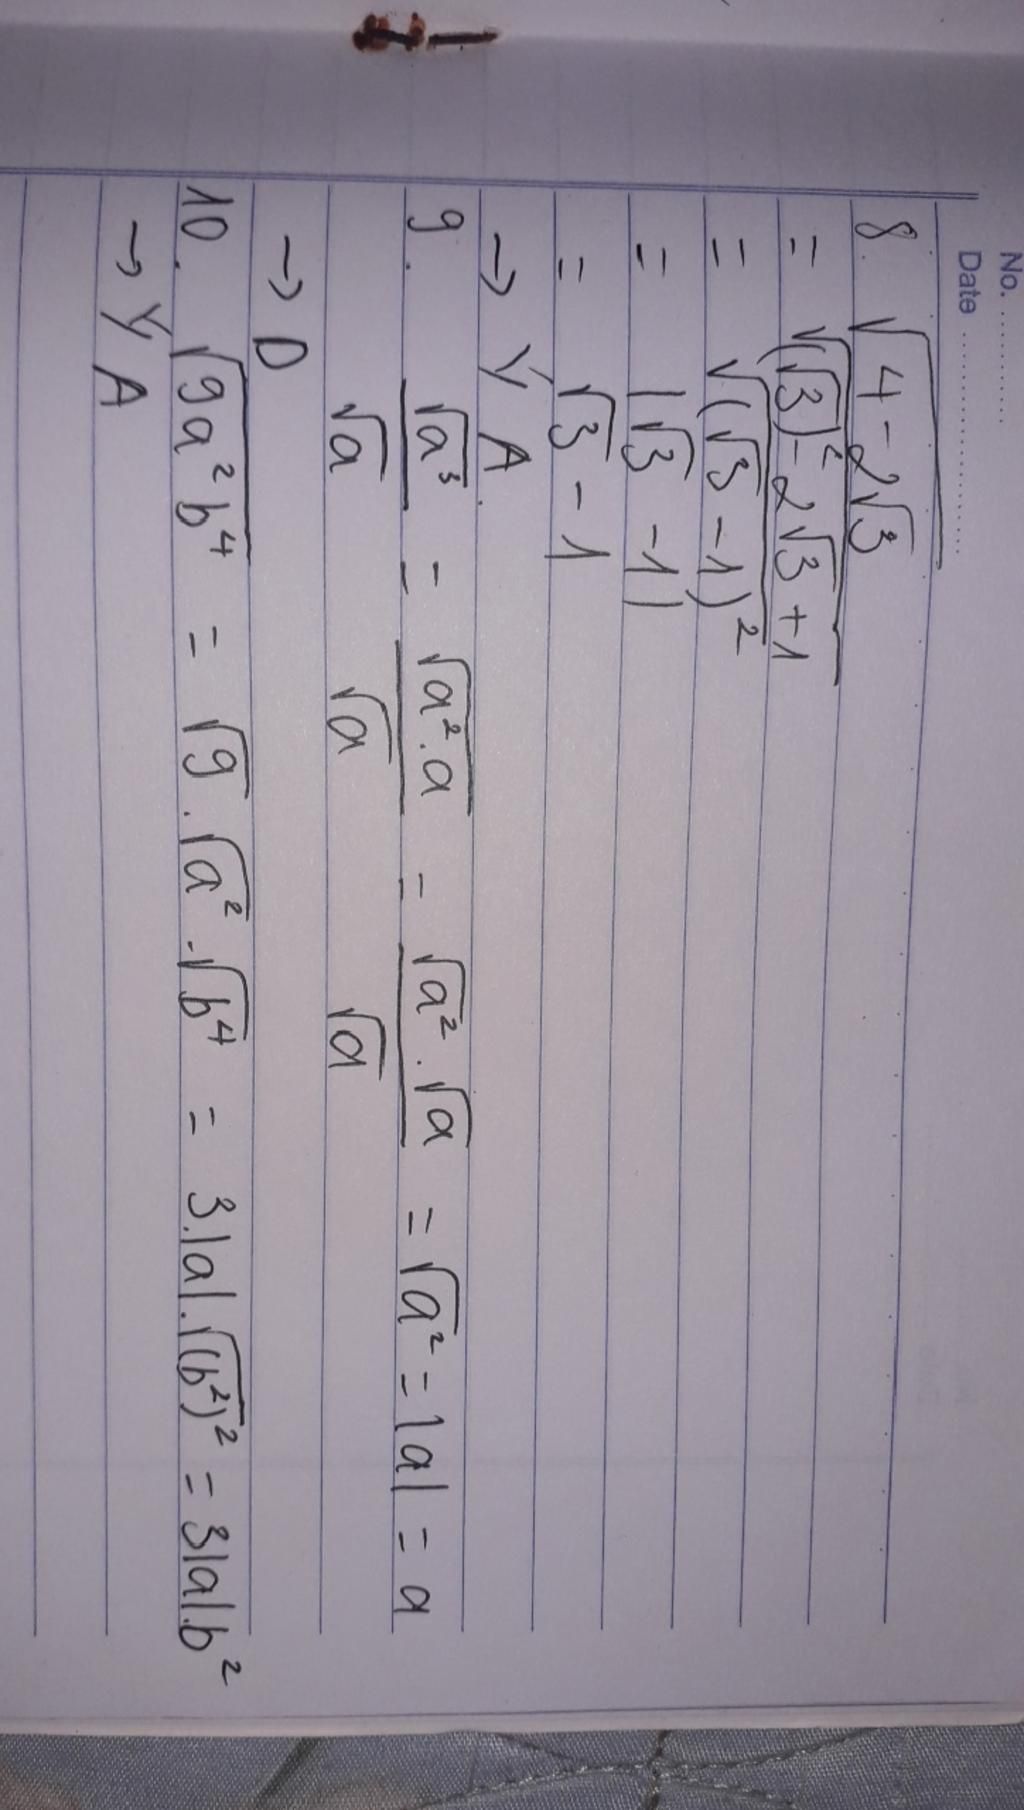 No. ..........
Date ......................
8. √(4 - 2√3)
= √((√3)² - 2√3 + 1)
= √((√3 - 1)²)
= |√3 - 1|
= √3 - 1
→ Ý A.
9. √(a³)/√a = √(a².a)/√a = √(a²).√a/√a = √(a²) = |a| = a
→ D
10. √(9a²b⁴) = √9 . √(a²) . √(b⁴) = 3.|a|.√((b²)²) = 3|a|.b²
→ Ý A